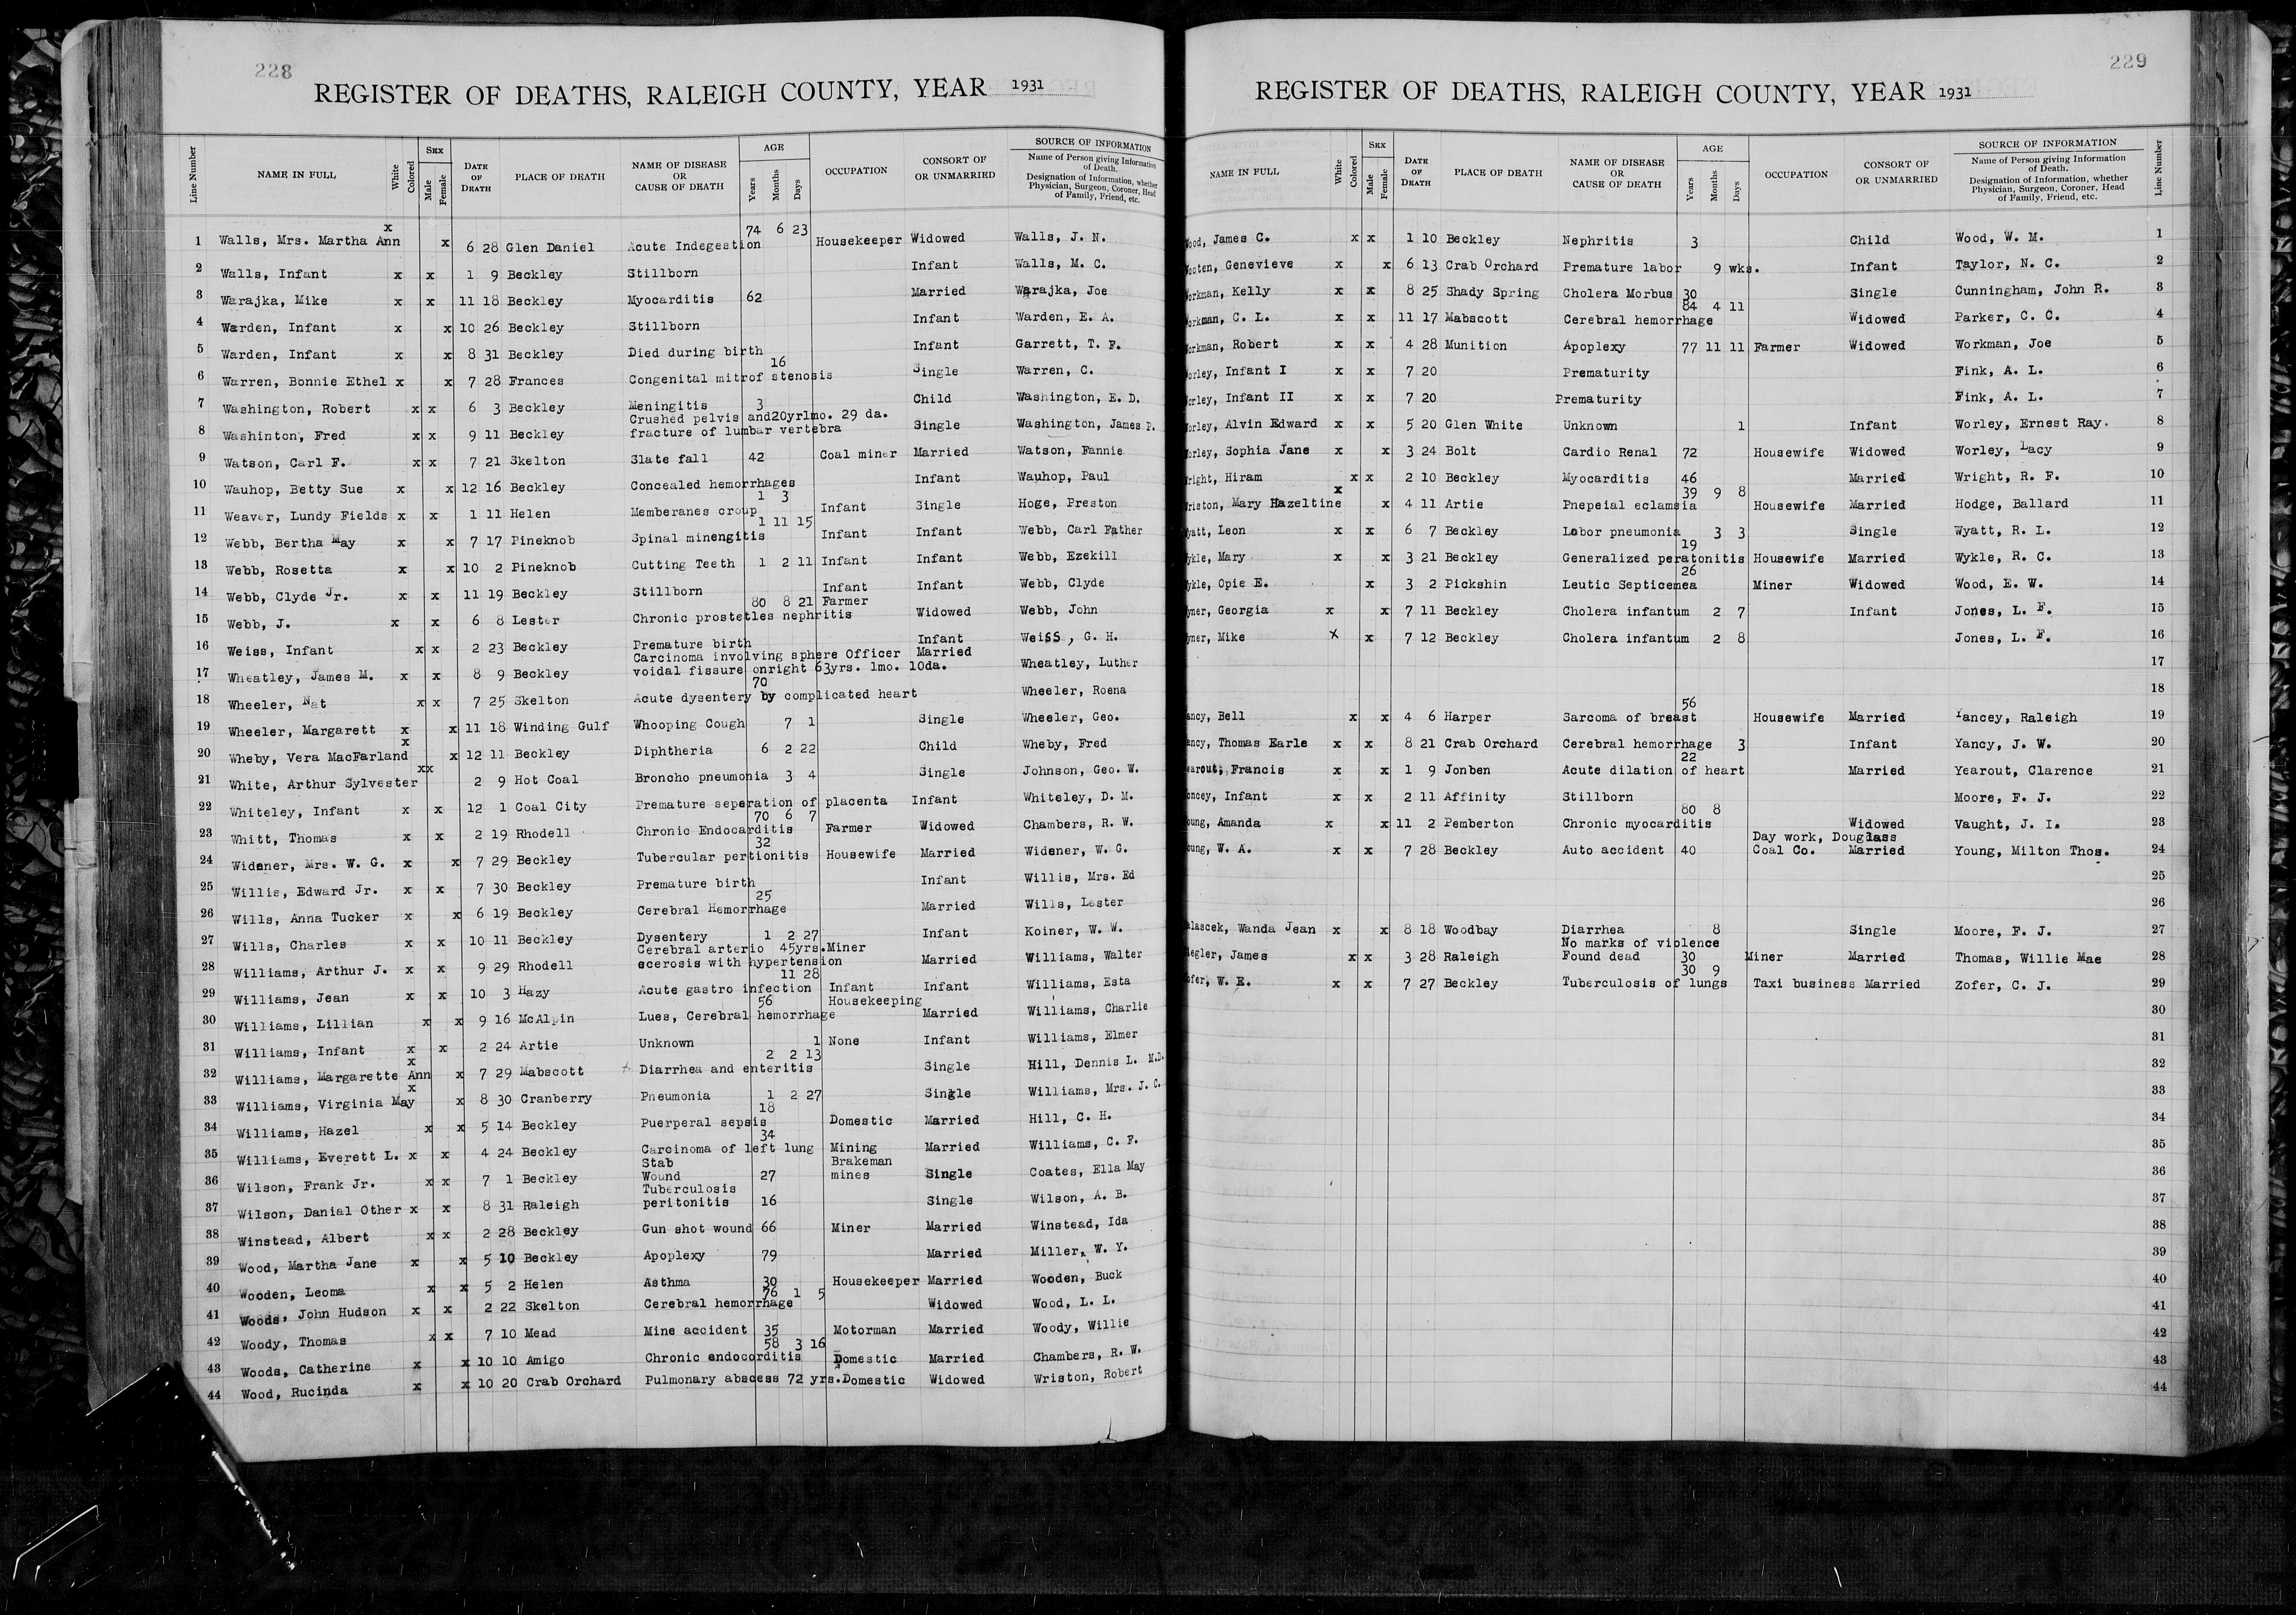 228
REGISTER OF DEATHS, RALEIGH COUNTY, YEAR 1931
Line Number NAME IN FULL White Colored SEX Male Female DATE OF DEATH PLACE OF DEATH NAME OF DISEASE OR CAUSE OF DEATH AGE Years Months Days OCCUPATION CONSORT OF OR UNMARRIED SOURCE OF INFORMATION Name of Person giving Information of Death. Designation of Information, whether Physician, Surgeon, Coroner, Head of Family, Friend, etc.
1 Walls, Mrs. Martha Ann x x 6 28 Glen Daniel Acute Indegestion 74 6 23 Housekeeper Widowed Walls, J. N.
2 Walls, Infant x x 1 9 Beckley Stillborn Infant Walls, M. C.
3 Warajka, Mike x x 11 18 Beckley Myocarditis 62 Married Warajka, Joe
4 Warden, Infant x x 10 26 Beckley Stillborn Infant Warden, E. A.
5 Warden, Infant x x 8 31 Beckley Died during birth Infant Garrett, T. F.
6 Warren, Bonnie Ethel x x 7 28 Frances Congenital mitrof stenosis 16 Single Warren, C.
7 Washington, Robert x x 6 3 Beckley Meningitis 3 Child Washington, E. D.
8 Washinton, Fred x x 9 11 Beckley Crushed pelvis and 20yr1mo. 29 da. fracture of lumbar vertebra Single Washington, James P.
9 Watson, Carl F. x x 7 21 Skelton Slate fall 42 Coal miner Married Watson, Fannie
10 Wauhop, Betty Sue x x 12 16 Beckley Concealed hemorrhages Infant Wauhop, Paul
11 Weaver, Lundy Fields x x 1 11 Helen Memberanes croup 1 3 Infant Single Hoge, Preston
12 Webb, Bertha May x x 7 17 Pineknob Spinal minengitis 1 11 15 Infant Infant Webb, Carl Father
13 Webb, Rosetta x x 10 2 Pineknob Cutting Teeth 1 2 11 Infant Infant Webb, Ezekill
14 Webb, Clyde Jr. x x 11 19 Beckley Stillborn Infant Infant Webb, Clyde
15 Webb, J. x x 6 8 Lester Chronic prostetles nephritis 80 8 21 Farmer Widowed Webb, John
16 Weiss, Infant x x 2 23 Beckley Premature birth Infant Weiss, G. H.
17 Wheatley, James M. x x 8 9 Beckley Carcinoma involving sphere Officer Married voidal fissure onright 63yrs. 1mo. 10da. Wheatley, Luther
18 Wheeler, Nat x x 7 25 Skelton Acute dysentery by complicated heart 70 Wheeler, Roena
19 Wheeler, Margarett x x 11 18 Winding Gulf Whooping Cough 7 1 Single Wheeler, Geo.
20 Wheby, Vera MacFarland x x 12 11 Beckley Diphtheria 6 2 22 Child Wheby, Fred
21 White, Arthur Sylvester xx 2 9 Hot Coal Broncho pneumonia 3 4 Single Johnson, Geo. W.
22 Whiteley, Infant x x 12 1 Coal City Premature seperation of placenta Infant Whiteley, D. M.
23 Whitt, Thomas x x 2 19 Rhodell Chronic Endocarditis 70 6 7 Farmer Widowed Chambers, R. W.
24 Widener, Mrs. W. G. x x 7 29 Beckley Tubercular pertionitis 32 Housewife Married Widener, W. G.
25 Willis, Edward Jr. x x 7 30 Beckley Premature birth Infant Willis, Mrs. Ed
26 Wills, Anna Tucker x x 6 19 Beckley Cerebral Hemorrhage 25 Married Wills, Lester
27 Wills, Charles x x 10 11 Beckley Dysentery 1 2 27 Infant Koiner, W. W.
28 Williams, Arthur J. x x 9 29 Rhodell Cerebral arterio 45yrs. Miner scerosis with hypertension Married Williams, Walter
29 Williams, Jean x x 10 3 Hazy Acute gastro infection 11 28 Infant Infant Williams, Esta
30 Williams, Lillian x x 9 16 McAlpin Lues, Cerebral hemorrhage 56 Housekeeping Married Williams, Charlie
31 Williams, Infant x x 2 24 Artie Unknown 1 None Infant Williams, Elmer
32 Williams, Margarette Ann x x 7 29 Mabscott Diarrhea and enteritis 2 2 13 Single Hill, Dennis L. M.D.
33 Williams, Virginia May x x 8 30 Cranberry Pneumonia 1 2 27 Single Williams, Mrs. J. C.
34 Williams, Hazel x x 5 14 Beckley Puerperal sepsis 18 Domestic Married Hill, C. H.
35 Williams, Everett L. x x 4 24 Beckley Carcinoma of left lung 34 Mining Married Williams, C. F.
36 Wilson, Frank Jr. x x 7 1 Beckley Stab Wound 27 Brakeman mines Single Coates, Ella May
37 Wilson, Danial Other x x 8 31 Raleigh Tuberculosis peritonitis 16 Single Wilson, A. B.
38 Winstead, Albert x x 2 28 Beckley Gun shot wound 66 Miner Married Winstead, Ida
39 Wood, Martha Jane x x 5 10 Beckley Apoplexy 79 Married Miller, W. Y.
40 Wooden, Leoma x x 5 2 Helen Asthma 30 Housekeeper Married Wooden, Buck
41 Woods, John Hudson x x 2 22 Skelton Cerebral hemorrhage 76 1 5 Widowed Wood, L. L.
42 Woody, Thomas x x 7 10 Mead Mine accident 35 Motorman Married Woody, Willie
43 Woods, Catherine x x 10 10 Amigo Chronic endocorditis 58 3 16 Domestic Married Chambers, R. W.
44 Wood, Rucinda x x 10 20 Crab Orchard Pulmonary abscess 72 yrs. Domestic Widowed Wriston, Robert
229
REGISTER OF DEATHS, RALEIGH COUNTY, YEAR 1931
NAME IN FULL White Colored SEX Male Female DATE OF DEATH PLACE OF DEATH NAME OF DISEASE OR CAUSE OF DEATH AGE Years Months Days OCCUPATION CONSORT OF OR UNMARRIED SOURCE OF INFORMATION Name of Person giving Information of Death. Designation of Information, whether Physician, Surgeon, Coroner, Head of Family, Friend, etc. Line Number
Wood, James C. x x 1 10 Beckley Nephritis 3 Child Wood, W. M. 1
Wooten, Genevieve x x 6 13 Crab Orchard Premature labor 9 wks. Infant Taylor, N. C. 2
Workman, Kelly x x 8 25 Shady Spring Cholera Morbus 30 Single Cunningham, John R. 3
Workman, C. L. x x 11 17 Mabscott Cerebral hemorrhage 84 4 11 Widowed Parker, C. C. 4
Workman, Robert x x 4 28 Munition Apoplexy 77 11 11 Farmer Widowed Workman, Joe 5
Worley, Infant I x x 7 20 Prematurity Fink, A. L. 6
Worley, Infant II x x 7 20 Prematurity Fink, A. L. 7
Worley, Alvin Edward x x 5 20 Glen White Unknown 1 Infant Worley, Ernest Ray. 8
Worley, Sophia Jane x x 3 24 Bolt Cardio Renal 72 Housewife Widowed Worley, Lacy 9
Wright, Hiram x x 2 10 Beckley Myocarditis 46 Married Wright, R. F. 10
Wriston, Mary Hazeltine x x 4 11 Artie Pnepeial eclamsia 39 9 8 Housewife Married Hodge, Ballard 11
Wyatt, Leon x x 6 7 Beckley Lobor pneumonia 3 3 Single Wyatt, R. L. 12
Wykle, Mary x x 3 21 Beckley Generalized peratonitis 19 Housewife Married Wykle, R. C. 13
Wykle, Opie E. x 3 2 Pickshin Leutic Septicemea 26 Miner Widowed Wood, E. W. 14
yner, Georgia x x 7 11 Beckley Cholera infantum 2 7 Infant Jones, L. F. 15
yner, Mike x x 7 12 Beckley Cholera infantum 2 8 Jones, L. F. 16
17
18
ancy, Bell x x 4 6 Harper Sarcoma of breast 56 Housewife Married Yancey, Raleigh 19
ancy, Thomas Earle x x 8 21 Crab Orchard Cerebral hemorrhage 3 Infant Yancy, J. W. 20
earout, Francis x x 1 9 Jonben Acute dilation of heart 22 Married Yearout, Clarence 21
oncey, Infant x x 2 11 Affinity Stillborn Moore, F. J. 22
oung, Amanda x x 11 2 Pemberton Chronic myocarditis 80 8 Widowed Vaught, J. I. 23
oung, W. A. x x 7 28 Beckley Auto accident 40 Day work, Douglass Coal Co. Married Young, Milton Thos. 24
25
26
alascek, Wanda Jean x x 8 18 Woodbay Diarrhea 8 Single Moore, F. J. 27
iegler, James x x 3 28 Raleigh No marks of violence Found dead 30 Miner Married Thomas, Willie Mae 28
ofer, W. E. x x 7 27 Beckley Tuberculosis of lungs 30 9 Taxi business Married Zofer, C. J. 29
30
31
32
33
34
35
36
37
38
39
40
41
42
43
44